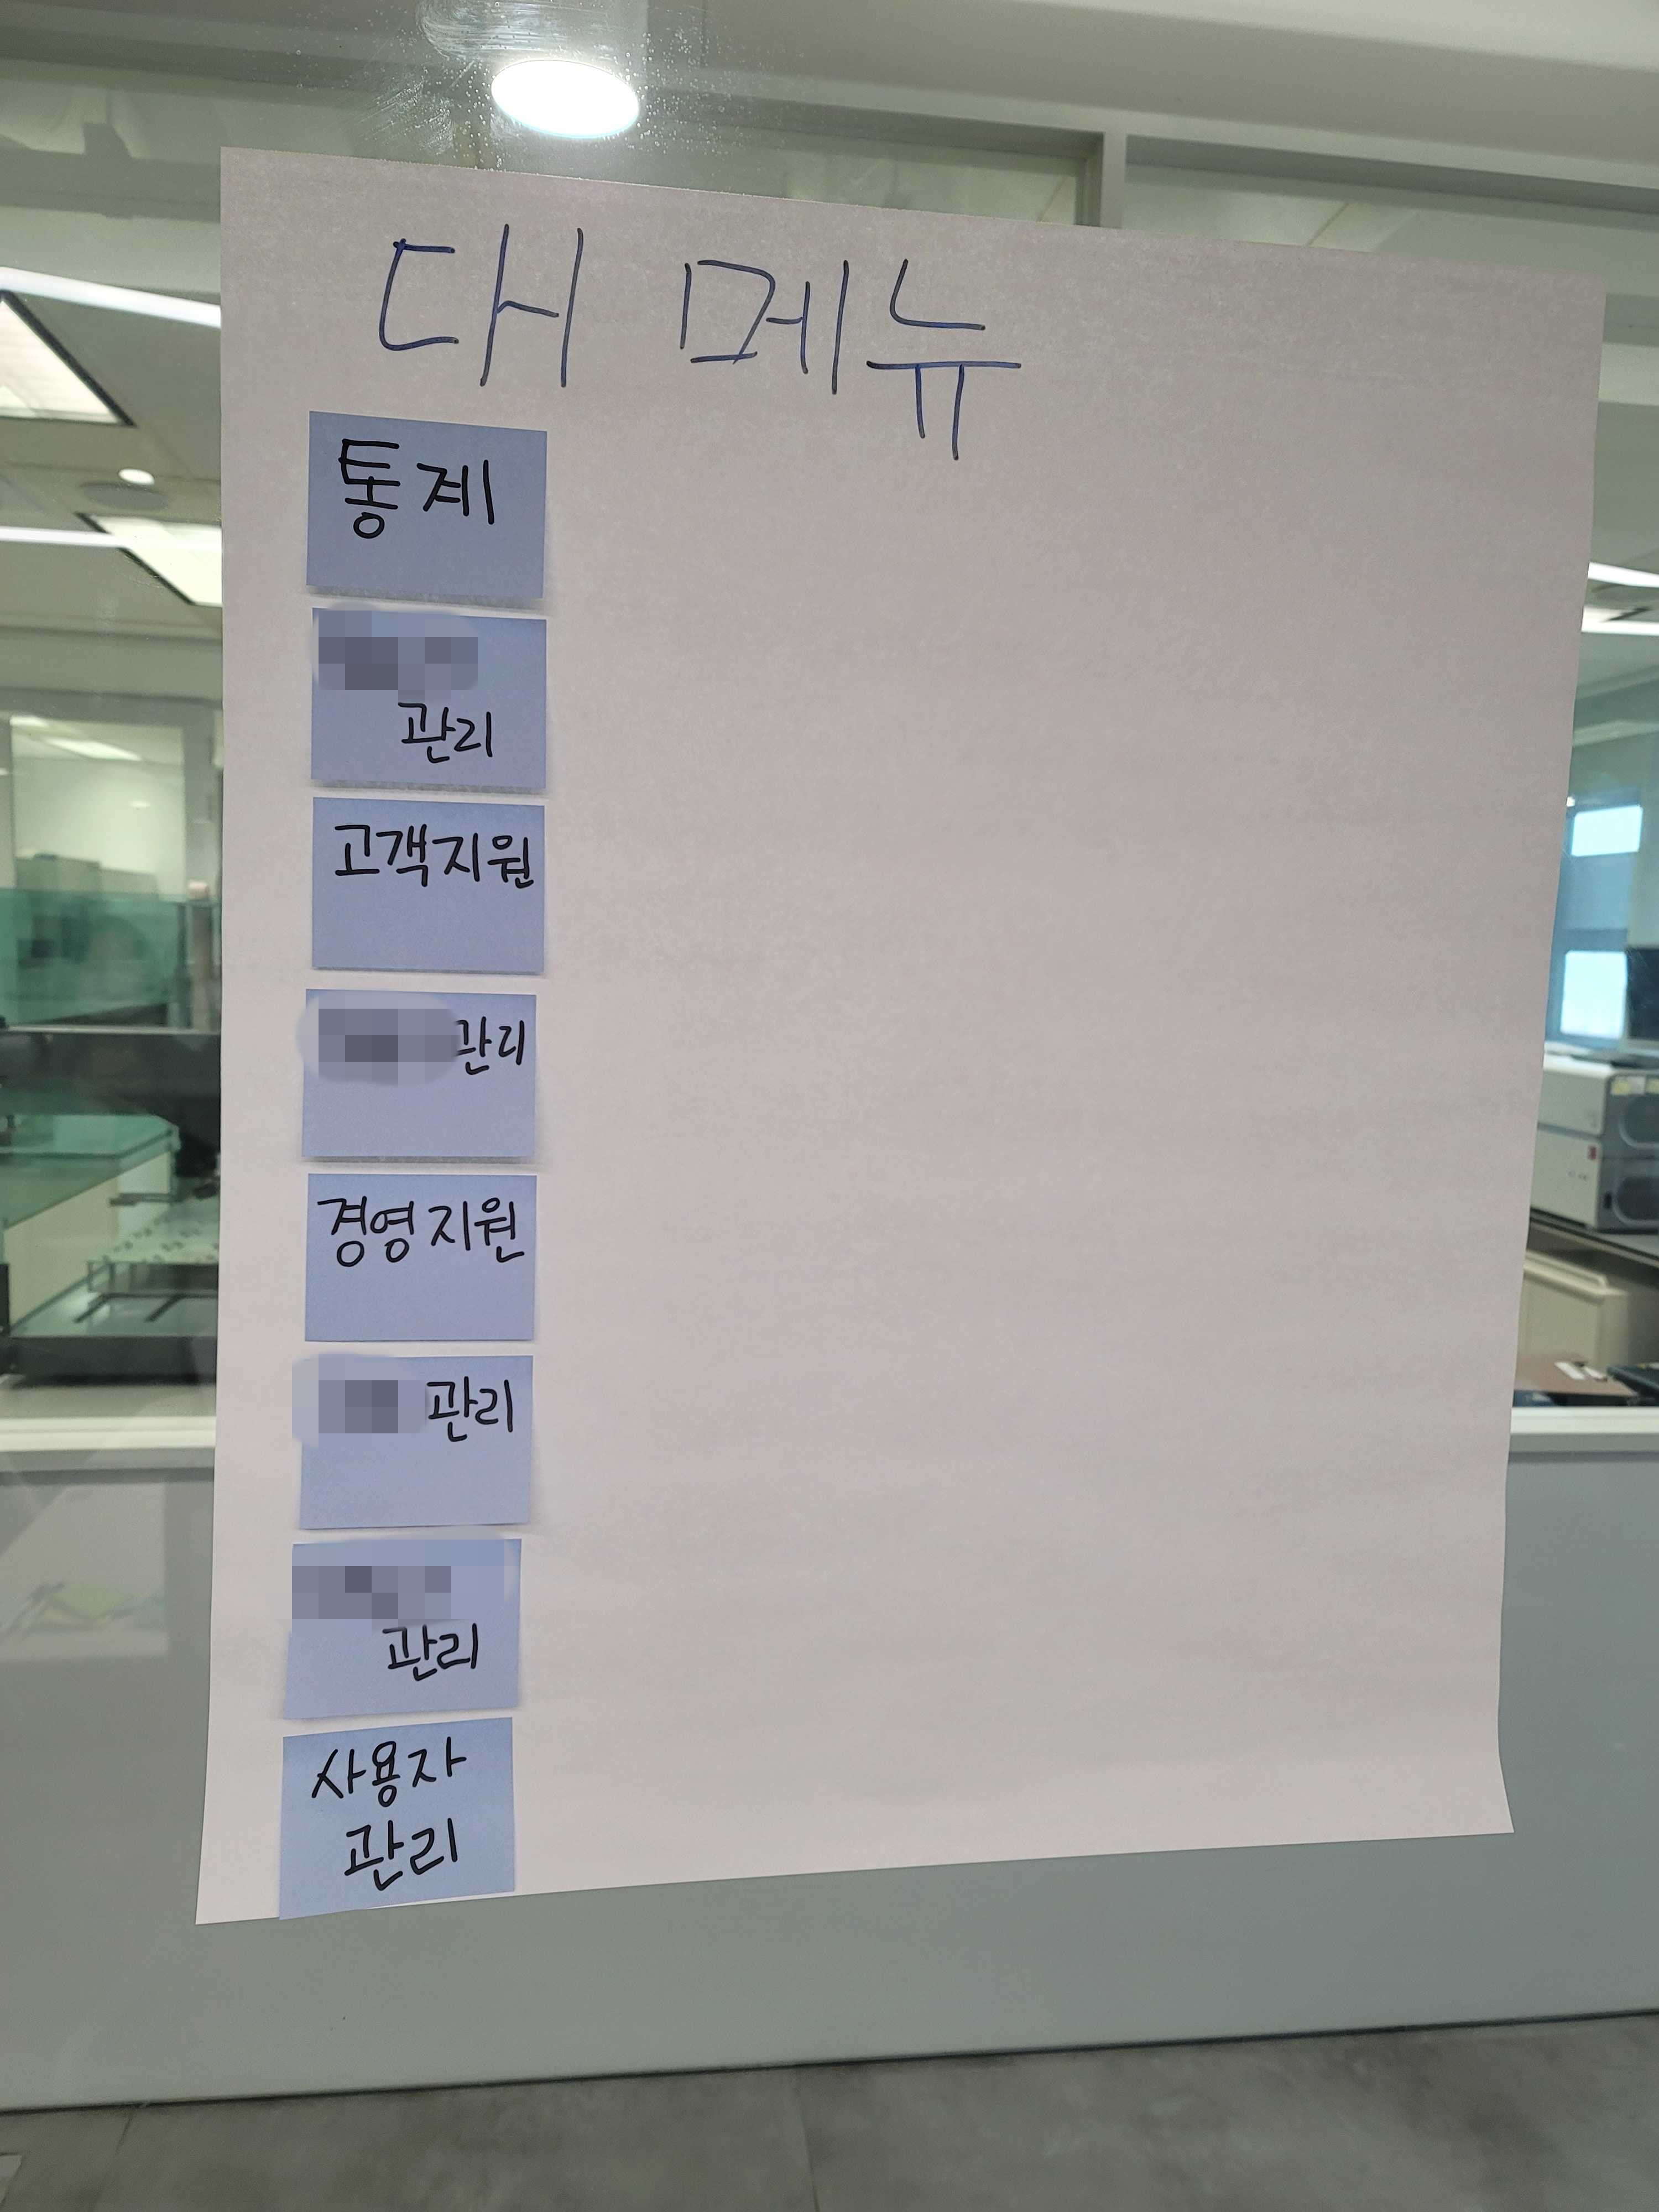 대 메뉴
통계
관리
고객지원
관리
경영지원
관리
관리
사용자
관리